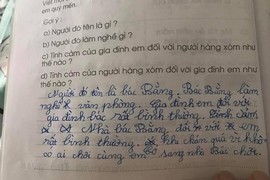 em quý mến.
Gợi ý :
a) Người đó tên là gì ?
b) Người đó làm nghề gì ?
c) Tình cảm của gia đình em đối với người hàng xóm như
thế nào ?
d) Tình cảm của người hàng xóm đối với gia đình em như
thế nào ?
Người đó tên là bác Bằng. Bác Bằng làm
nghề văn phòng. Gia đình em đối với
gia đình bác rất bình thường. Tình cảm
Nhà bác Bằng đối với em
rất bình thường. khi chán quá vì không
có ai chơi cùng em sang nhà Bác chơi.